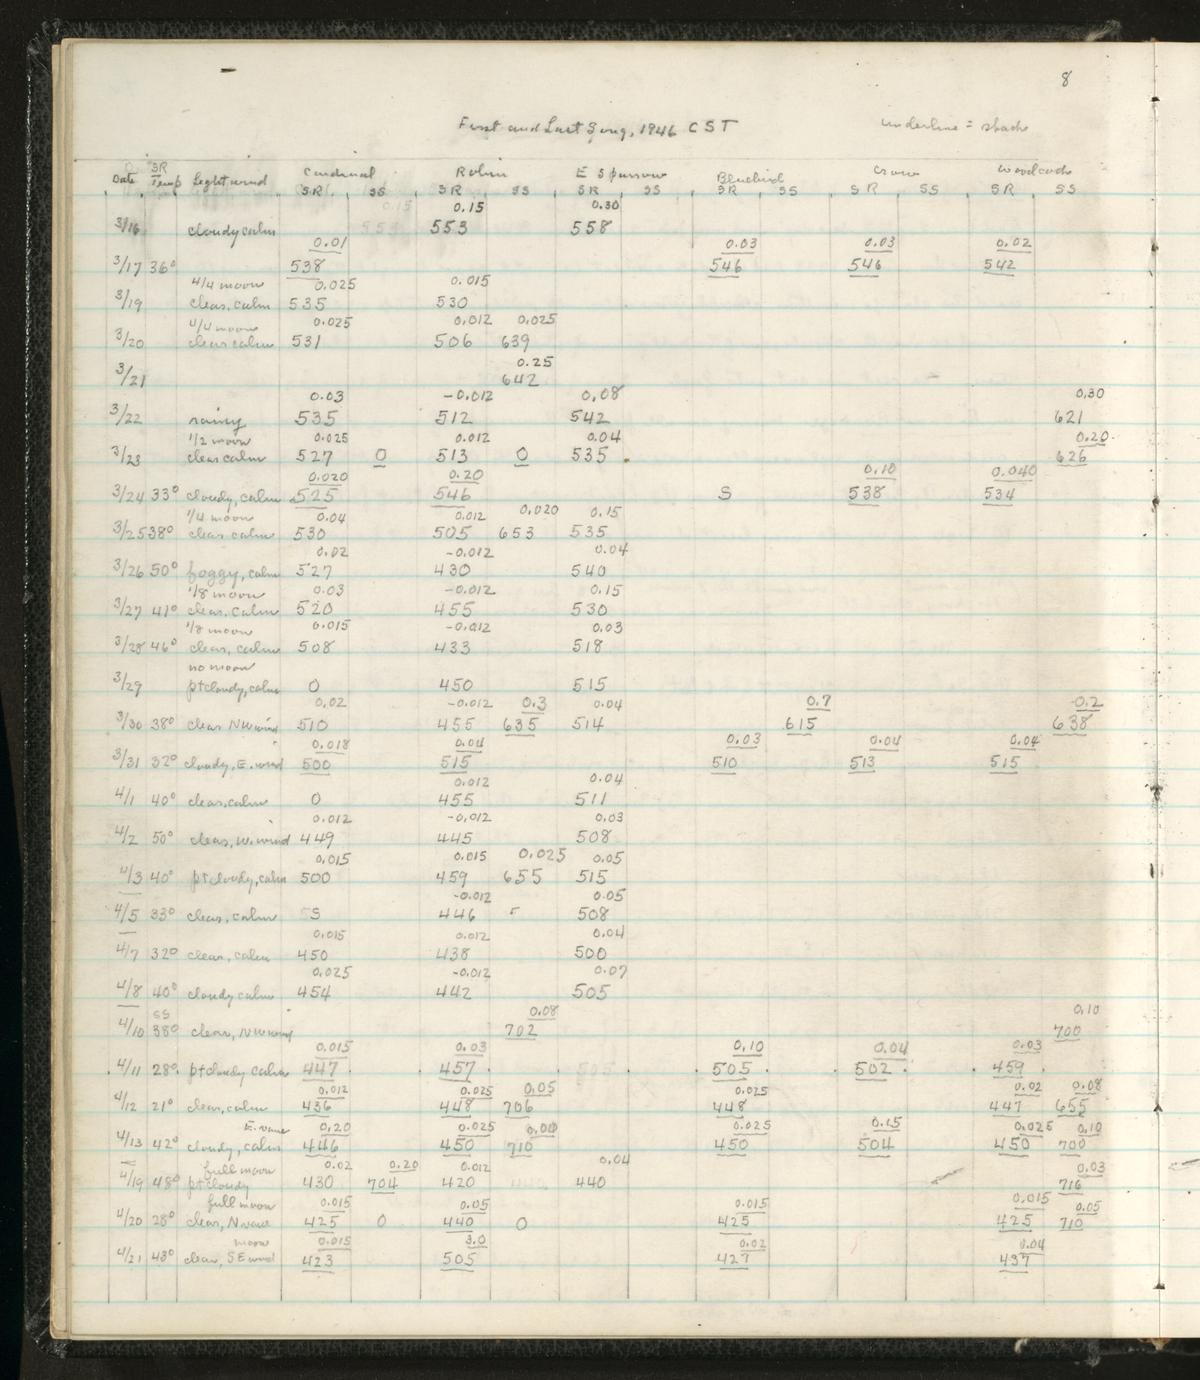 8
First and Last Song, 1946 CST underline = shack
Date SR Temp Light wind Cardinal Robin E Sparrow Bluebird Crow Woodcock
SR SS SR SS SR SS SR SS SR SS SR SS
0.15 0.15 0.30
3/16 cloudy calm 553 553 558
0.01 0.03 0.03 0.02
3/17 36° 538 546 546 542
4/4 moon 0.025 0.015
3/19 clear, calm 535 530
4/4 moon 0.025 0.012 0.025
3/20 clear calm 531 506 639
0.25
3/21 642
0.03 -0.012 0.08 0.30
3/22 rainy 535 512 542 621
1/2 moon 0.025 0.012 0.04 0.20
3/23 clear calm 527 0 513 0 535 626
0.020 0.20 0.10 0.040
3/24 33° cloudy, calm 525 546 S 538 534
1/4 moon 0.04 0.012 0.020 0.15
3/25 38° clear calm 530 505 653 535
0.02 -0.012 0.04
3/26 50° foggy, calm 527 430 540
1/8 moon 0.03 -0.012 0.15
3/27 41° clear, calm 520 455 530
1/8 moon 0.015 -0.012 0.03
3/28 46° clear, calm 508 433 518
no moon
3/29 pt cloudy, calm 0 450 515
0.02 -0.012 0.3 0.04 0.7 0.2
3/30 38° clear NW wind 510 455 635 514 615 638
0.018 0.04 0.03 0.04 0.04
3/31 32° cloudy, E. wind 500 515 510 513 515
0.012 0.04
4/1 40° clear, calm 0 455 511
0.012 -0.012 0.03
4/2 50° clear, W. wind 449 445 508
0.015 0.015 0.025 0.05
4/3 40° pt cloudy, calm 500 459 655 515
-0.012 0.05
4/5 33° clear, calm S 446 508
0.015 0.012 0.04
4/7 32° clear, calm 450 438 500
0.025 -0.012 0.07
4/8 40° cloudy calm 454 442 505
SS 0.08 0.10
4/10 38° clear, NW wind 702 700
0.015 0.03 0.10 0.04 0.03
4/11 28° pt cloudy calm 447 457 505 505 502 459
0.012 0.025 0.05 0.025 0.02 0.08
4/12 21° clear, calm 436 448 706 448 447 655
E. vane 0.20 0.025 0.025 0.15 0.025 0.10
4/13 42° cloudy, calm 446 450 710 450 504 450 700
full moon 0.02 0.20 0.012 0.04 0.03
4/19 48° pt cloudy 430 704 420 440 716
full moon 0.015 0.05 0.015 0.015 0.05
4/20 28° clear, N vane 425 0 440 0 425 425 710
moon 0.015 3.0 0.02 0.04
4/21 43° clear, SE wind 423 505 427 437